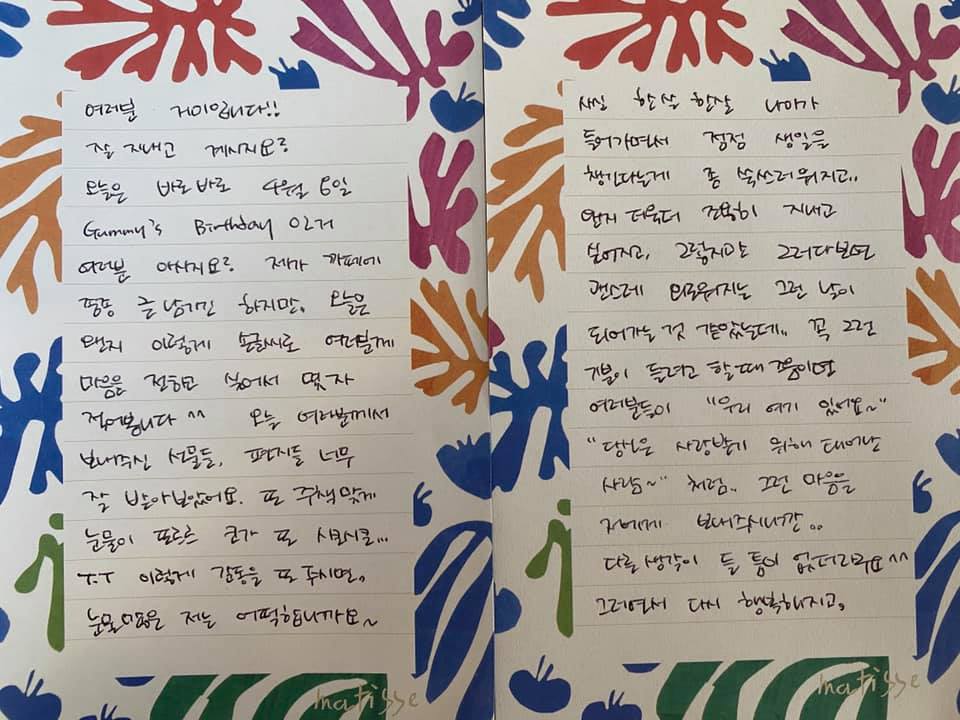 여러분 거미입니다!!
잘 지내고 계시지요?
오늘은 바로바로 4월 8일
Gummy's Birthday 이거
여러분 아시지요? 제가 까페에
종종 글 남기긴 하지만, 오늘은
왠지 이렇게 손글씨로 여러분께
마음을 전하고 싶어서 몇 자
적어봅니다 ^^ 오늘 여러분께서
보내주신 선물들, 편지들 너무
잘 받아보았어요. 또 주책맞게
눈물이 또르르 코가 또 시크시큰...
T.T 이렇게 감동을 또 주시면,
눈물많은 저는 어떡합니까요~
matisse
사실 한살 한살 나이가
들어가면서 점점 생일을
챙긴다는게 좀 쑥쓰러워지고..
왠지 더욱더 조용히 지내고
싶어지고, 그렇지만 그러다보면
괜스레 외로워지는 그런 날이
되어가는 것 같았는데.. 꼭 그런
기분이 들려고 할때 쯤이면
여러분들이 "우리 여기 있어요~"
"당신은 사랑받기 위해 태어난
사람~" 처럼.. 그런 마음을
저에게 보내주시니깐..
다른 생각이 들 틈이 없더라구요^^
그러면서 다시 행복해지고,
matisse